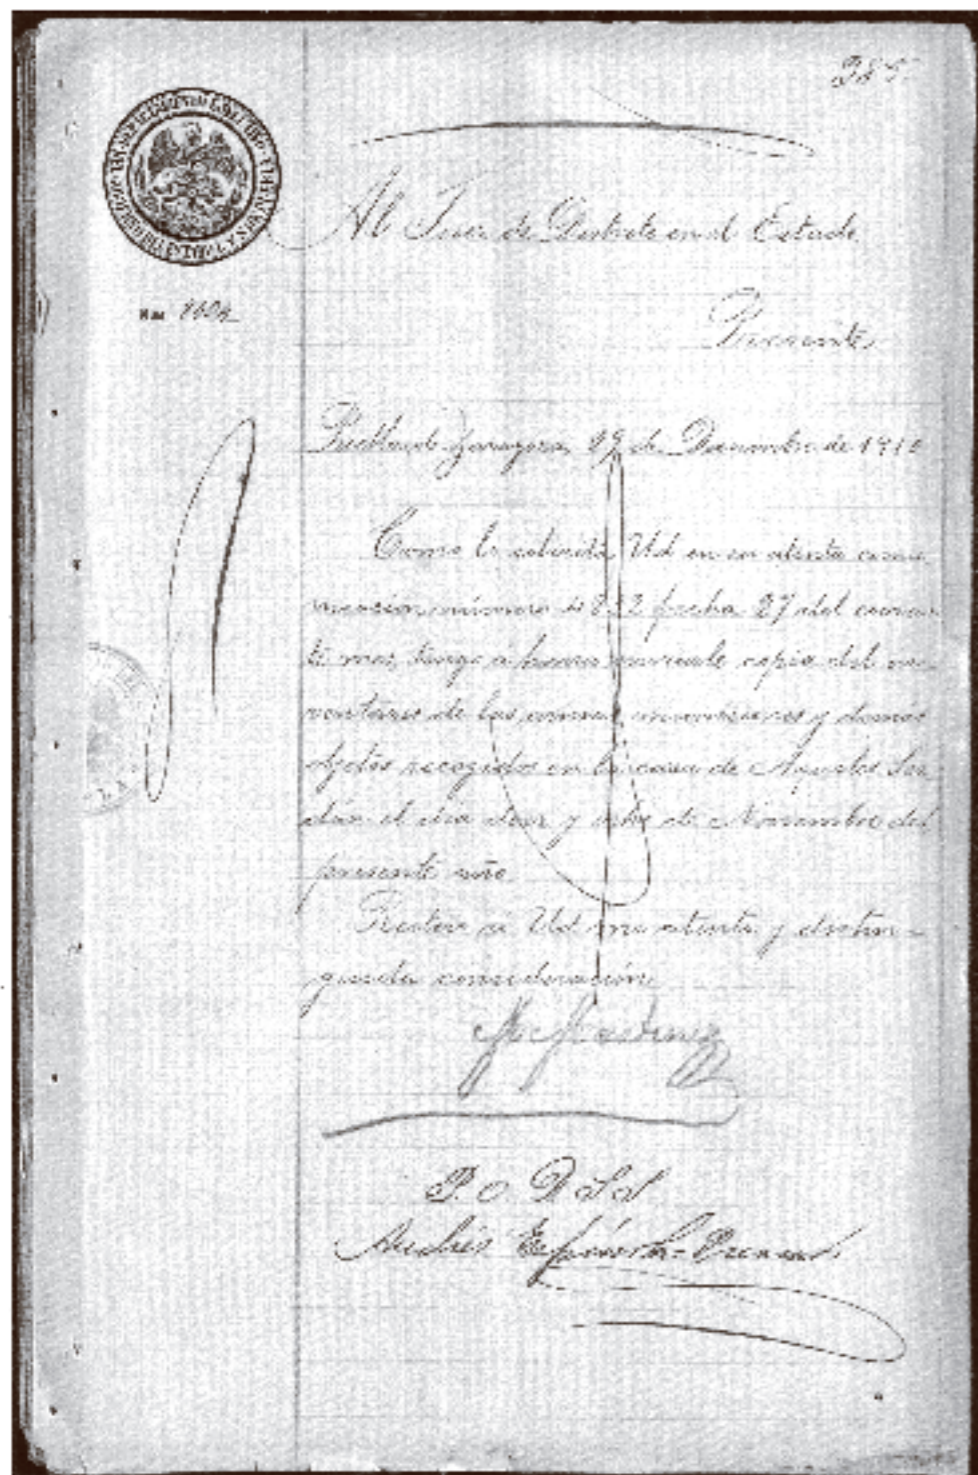 Al Juez de Distrito en el Estado.
Presente
Núm
Puebla de Zaragoza, 29 de Diciembre de 1910
Como lo solicita Ud en su atenta comu
nicación número fecha 27 del corrien
te mes, tengo a honra enviarle copia del in
ventario de las armas, municiones y demás
objetos recogidos en la casa de Aquiles Ser
dán el día diez y ocho de Noviembre del
presente año.
Reitero a Ud mi atenta y distin
guida consideración.
P. O. D
Andrés